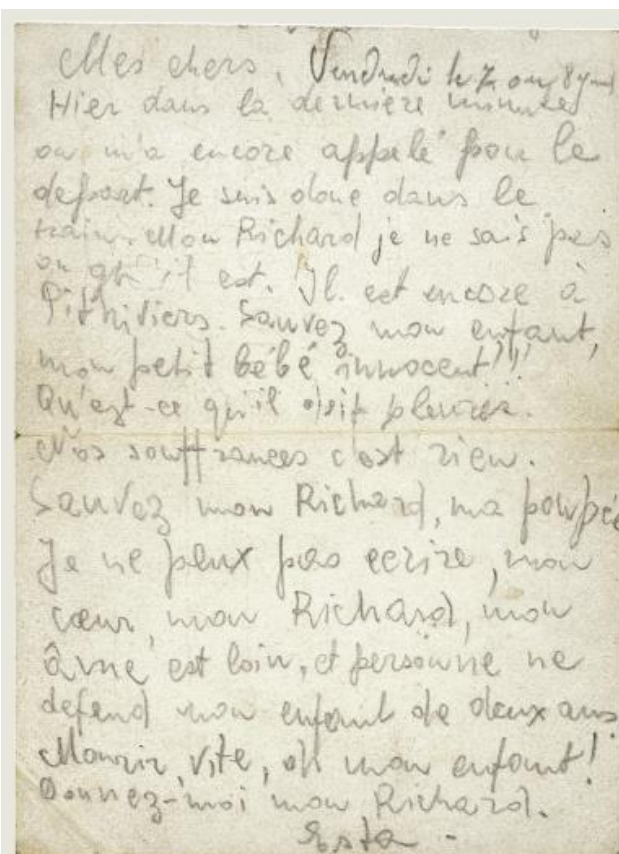 Mes chers, Vendredi le 7 ou 8
Hier dans la dernière minute
on m'a encore appelé pour le
depart. Je suis donc dans le
train. Mon Richard je ne sais pas
où qu'il est. Il est encore à
Pithiviers. Sauvez mon enfant,
mon petit bébé innocent!!!
Qu'est-ce qu'il doit pleurer.
Nos souffrances c'est rien.
Sauvez mon Richard, ma poupée
Je ne peux pas ecrire, mon
cœur, mon Richard, mon
âme est loin, et personne ne
defend mon enfant de deux ans.
Mourir, vite, oh mon enfant!
Donnez-moi mon Richard.
Esta -